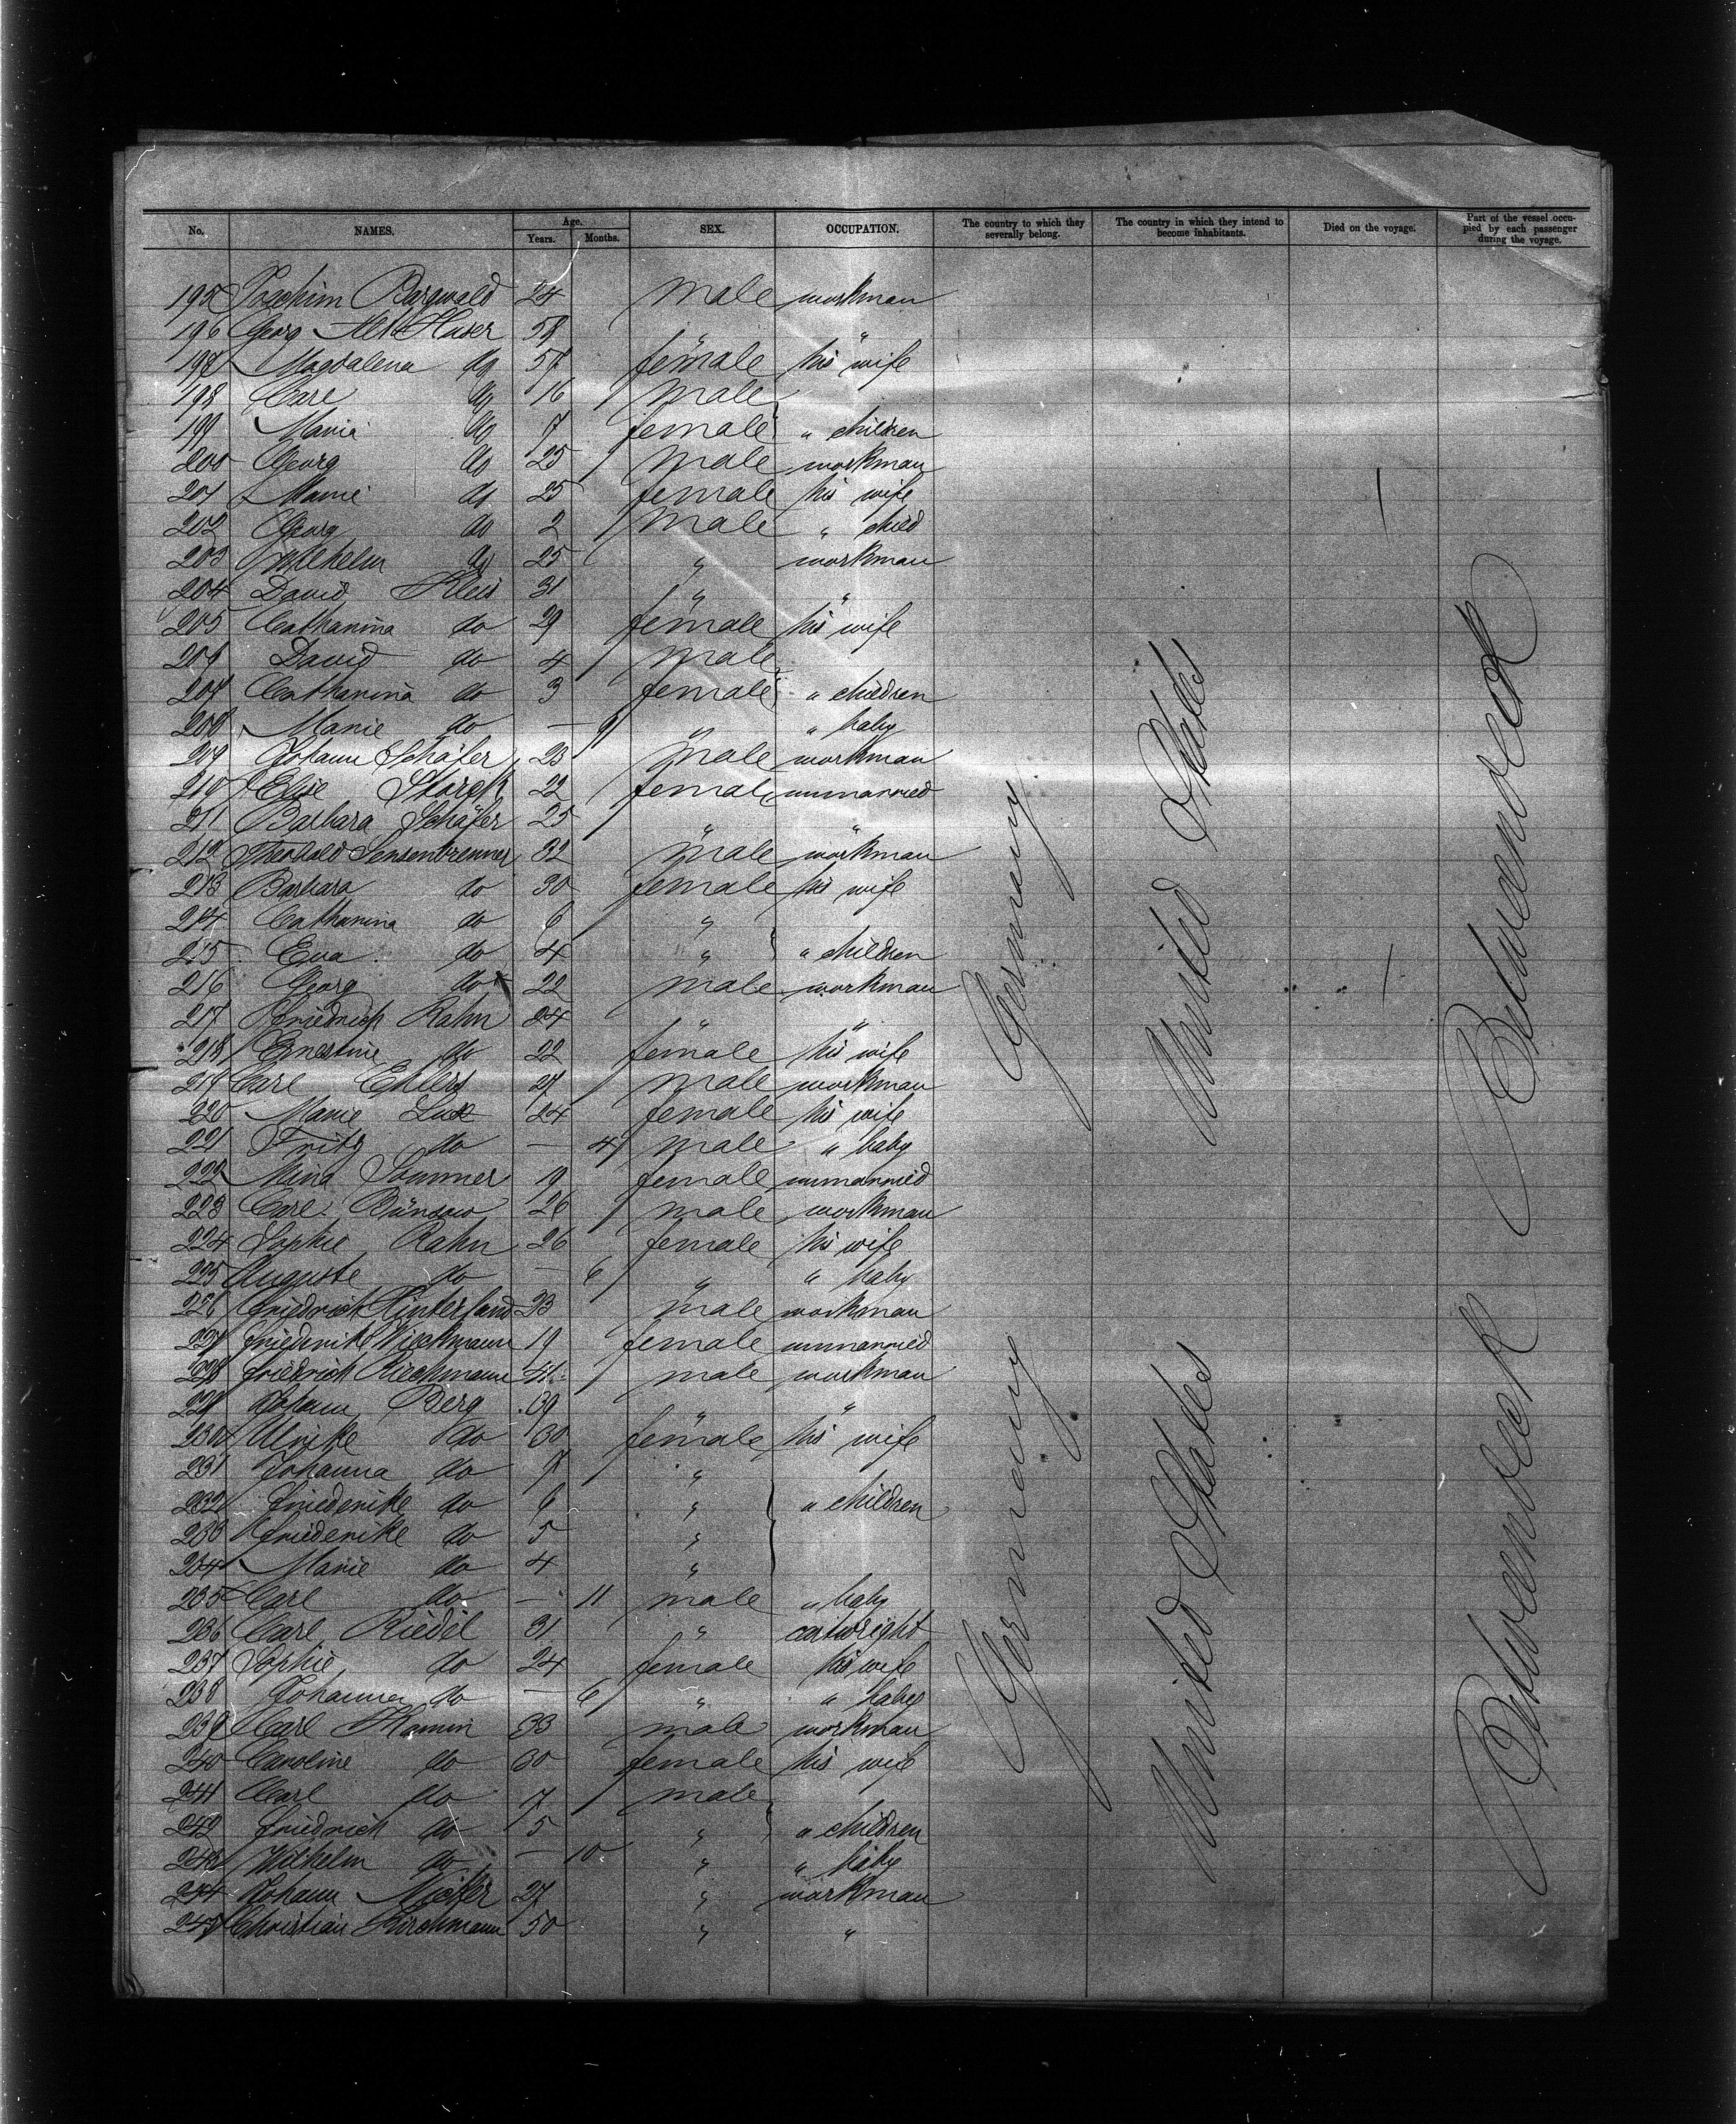 No. NAMES. Age. Years. Months. SEX. OCCUPATION. The country to which they severally belong. The country in which they intend to become inhabitants. Died on the voyage. Part of the vessel occupied by each passenger during the voyage.
195 Joachim Bargwald 24 male workman
196 Georg Alt Haser 58 " "
197 Magdalena do 57 female his wife
198 Carl do 16 male
199 Maria do 7 female " children
200 Georg do 25 male workman
201 Marie do 25 female his wife
202 Georg do 2 male " child
203 Wilhelm do 25 " workman
204 David Kleis 31 " "
205 Catharina do 29 female his wife
206 David do 4 male
207 Catharina do 3 female " children
208 Marie do — 9 " " baby
209 Johann Schäfer 23 male workman
210 Elise Storck 22 female unmarried
211 Barbara Schäfer 25 " "
212 Theobald Sensenbrenner 32 male workman
213 Barbara do 30 female his wife
214 Catharina do 6 "
215 Eva do 4 " " children
216 Georg do 22 male workman
217 Friedrich Rahn 24 " "
218 Ernestine do 22 female his wife
219 Carl Ehlers 27 male workman
220 Marie Lux 24 female his wife
221 Fritz do — 4 male " baby
222 Mina Sommer 19 female unmarried
223 Carl Bünsow 26 male workman
224 Sophie Rahn 26 female his wife
225 Auguste do — 6 " " baby
226 Friedrich Hinterland 23 male workman
227 Friederike Wiechmann 19 female unmarried
228 Friedrich Riechmann 41 male workman
229 Johann Berg 39 " "
230 Ulrike do 30 female his wife
231 Johanna do 7 "
232 Friederike do 6 " " children
233 Friederike do 5 "
234 Marie do 4 "
235 Carl do — 11 male " baby
236 Carl Riedel 31 " cartwright
237 Sophie do 24 female his wife
238 Johanna do — 6 " " baby
239 Carl Kamin 33 male workman
240 Caroline do 30 female his wife
241 Carl do 7 male
242 Friedrich do 5 " " children
243 Wilhelm do — 10 " " baby
244 Johann 27 " workman
245 Christian Kirchmann 50 " "
Germany
United States
Betweendeck
Germany
United States
Betweendeck